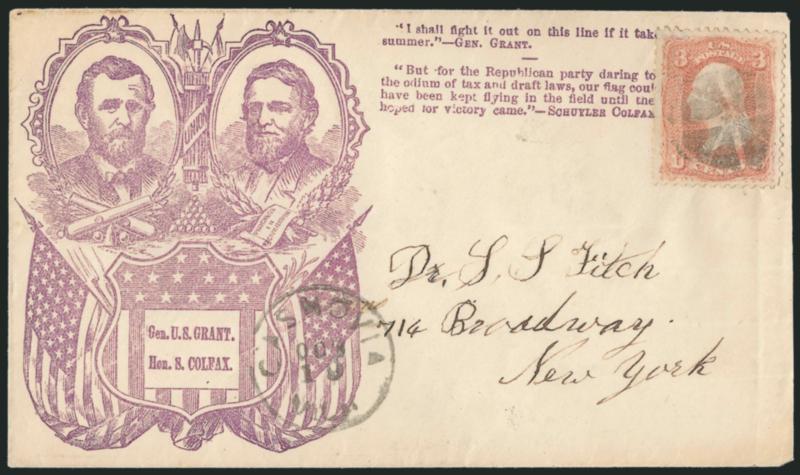 "I shall fight it out on this line if it take
summer."—GEN. GRANT.
"But for the Republican party daring to
the odium of tax and draft laws, our flag coul
have been kept flying in the field until the
hoped for victory came."—SCHUYLER COLFAX
3 U.S. 3
POSTAGE
CENTS
Dr. S. S. Fitch
714 Broadway.
New York
Gen. U.S. GRANT.
Hon. S. COLFAX.
CASNOVIA
MICH